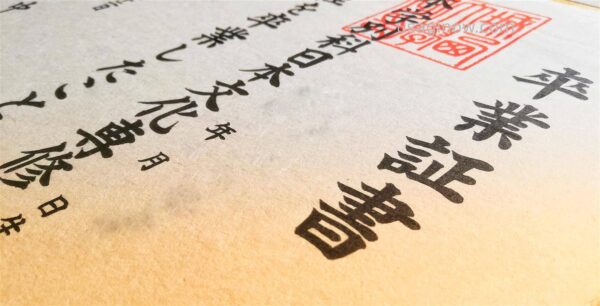 卒業証書
年 月 日生
科日本文化専修
を卒業したこと